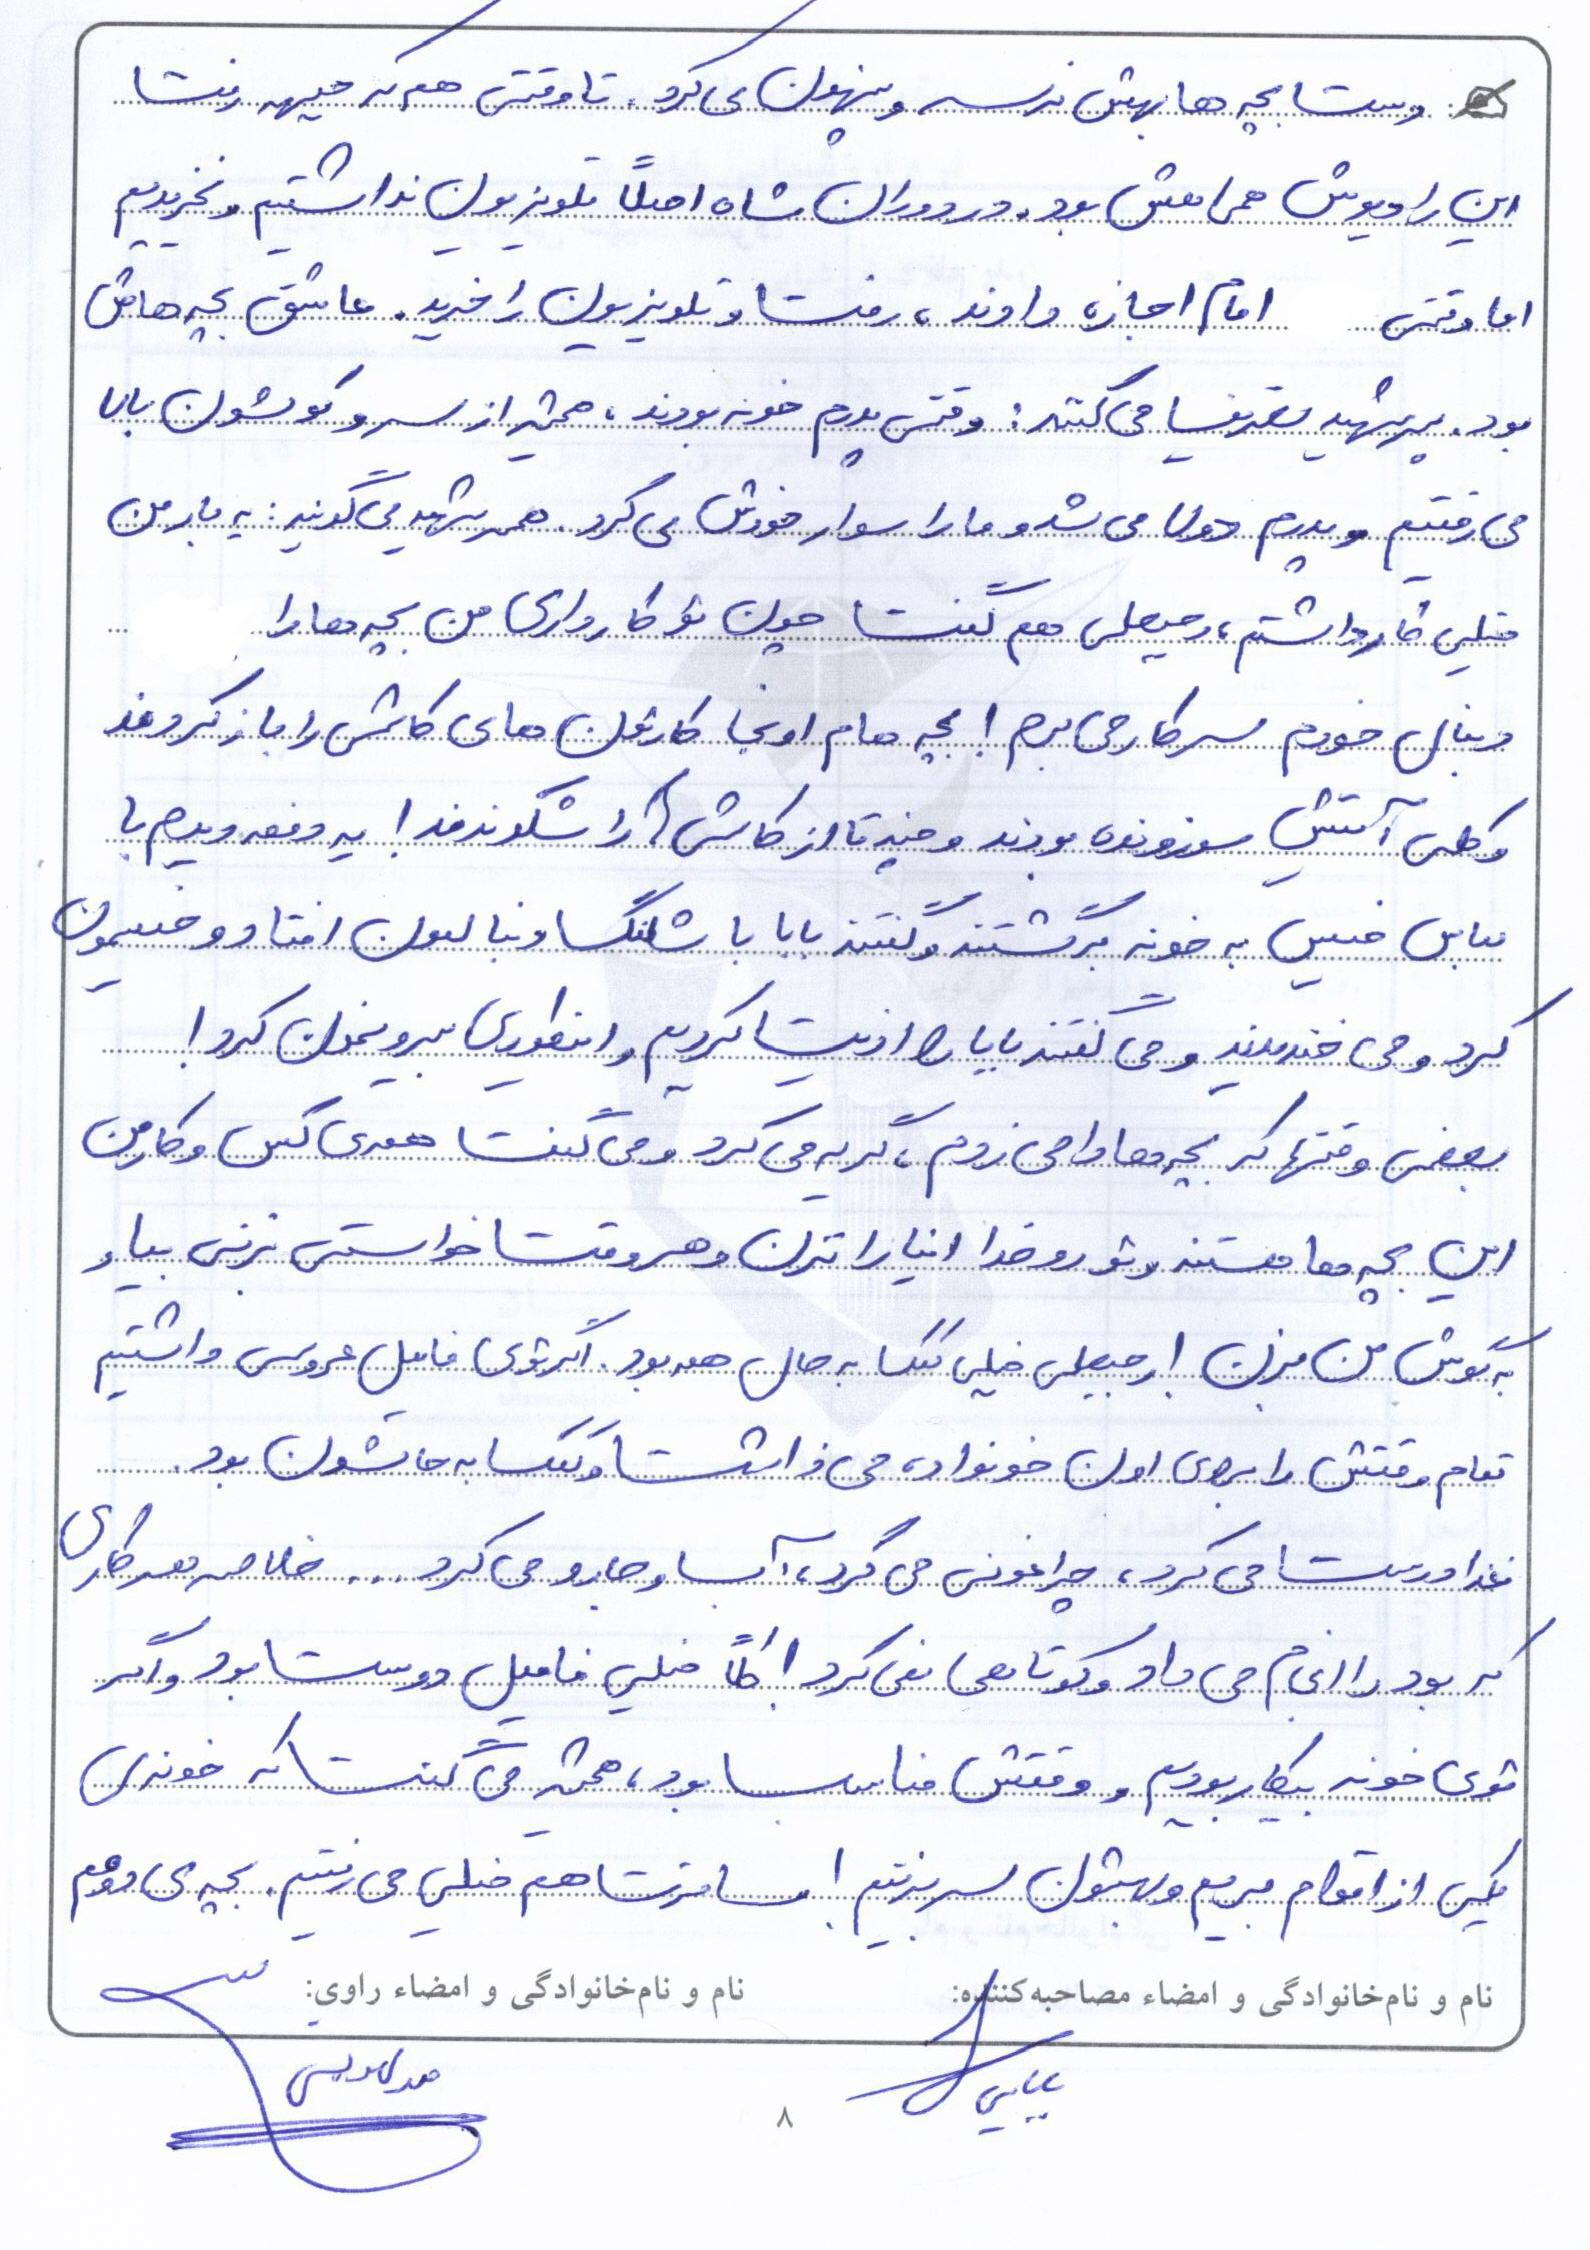 دست بچه ها بهش نرسه و پنهون می کرد. تا وقتی هم که جبهه رفت
این رادیوش همراهش بود. در دوران شاه اصلاً تلویزیون نداشتیم و نخریدیم
اما وقتی امام اجازه دادند، رفت و تلویزیون را خرید. عاشق بچه هاش
بود. پسر شهید می گفتند: وقتی پدرم خونه بودند، همش از سر و کولشون بالا
می رفتیم و پدرم دولا می شد و ما را سوار خودش می کرد. همسر شهید می گویند: یه بار من
خیلی کار داشتم، رجبعلی هم گفت چون تو کار داری من بچه ها را
دنبال خودم سر کار می برم! بچه هام اونجا کارتون های کاشی را باز کردند
و کلی آتش سوزونده بودند و چند تا از کاشی ها را شکوندند! یه دفعه دیدم با
لباس خیس به خونه برگشتند و گفتند بابا با شلنگ دنبالمون افتاد و خیسمون
کرد و می خندیدند و می گفتند بابا را اذیت کردیم و اینطوری بیرونمون کرد!
بعضی وقتها که بچه ها را می زدم، گریه می کرد و می گفت همه ی کس و کار من
این بچه ها هستند و تو رو خدا اینا را نزن و هر وقت خواستی بزنی بیا و
به گوش من بزن! رجبعلی خیلی کمک به حال همه بود. اگر توی فامیل عروسی داشتیم
تمام وقتش را برای اون خونواده می ذاشت و کمک به حالشون بود.
غذا درست می کرد، چراغونی می کرد، آب و جارو می کرد... خلاصه هر کاری
که بود را انجام می داد و کوتاهی نمی کرد! کلاً خیلی فامیل دوست بود و اگر
توی خونه بیکار بودیم و وقتش مناسب بود، همش می گفت که خونه ی
یکی از اقوام بریم و بهشون سر بزنیم! مسافرت هم خیلی می رفتیم. بچه ی دومم
نام و نام‌خانوادگی و امضاء مصاحبه‌کننده:
نام و نام‌خانوادگی و امضاء راوی:
بابایی
۸